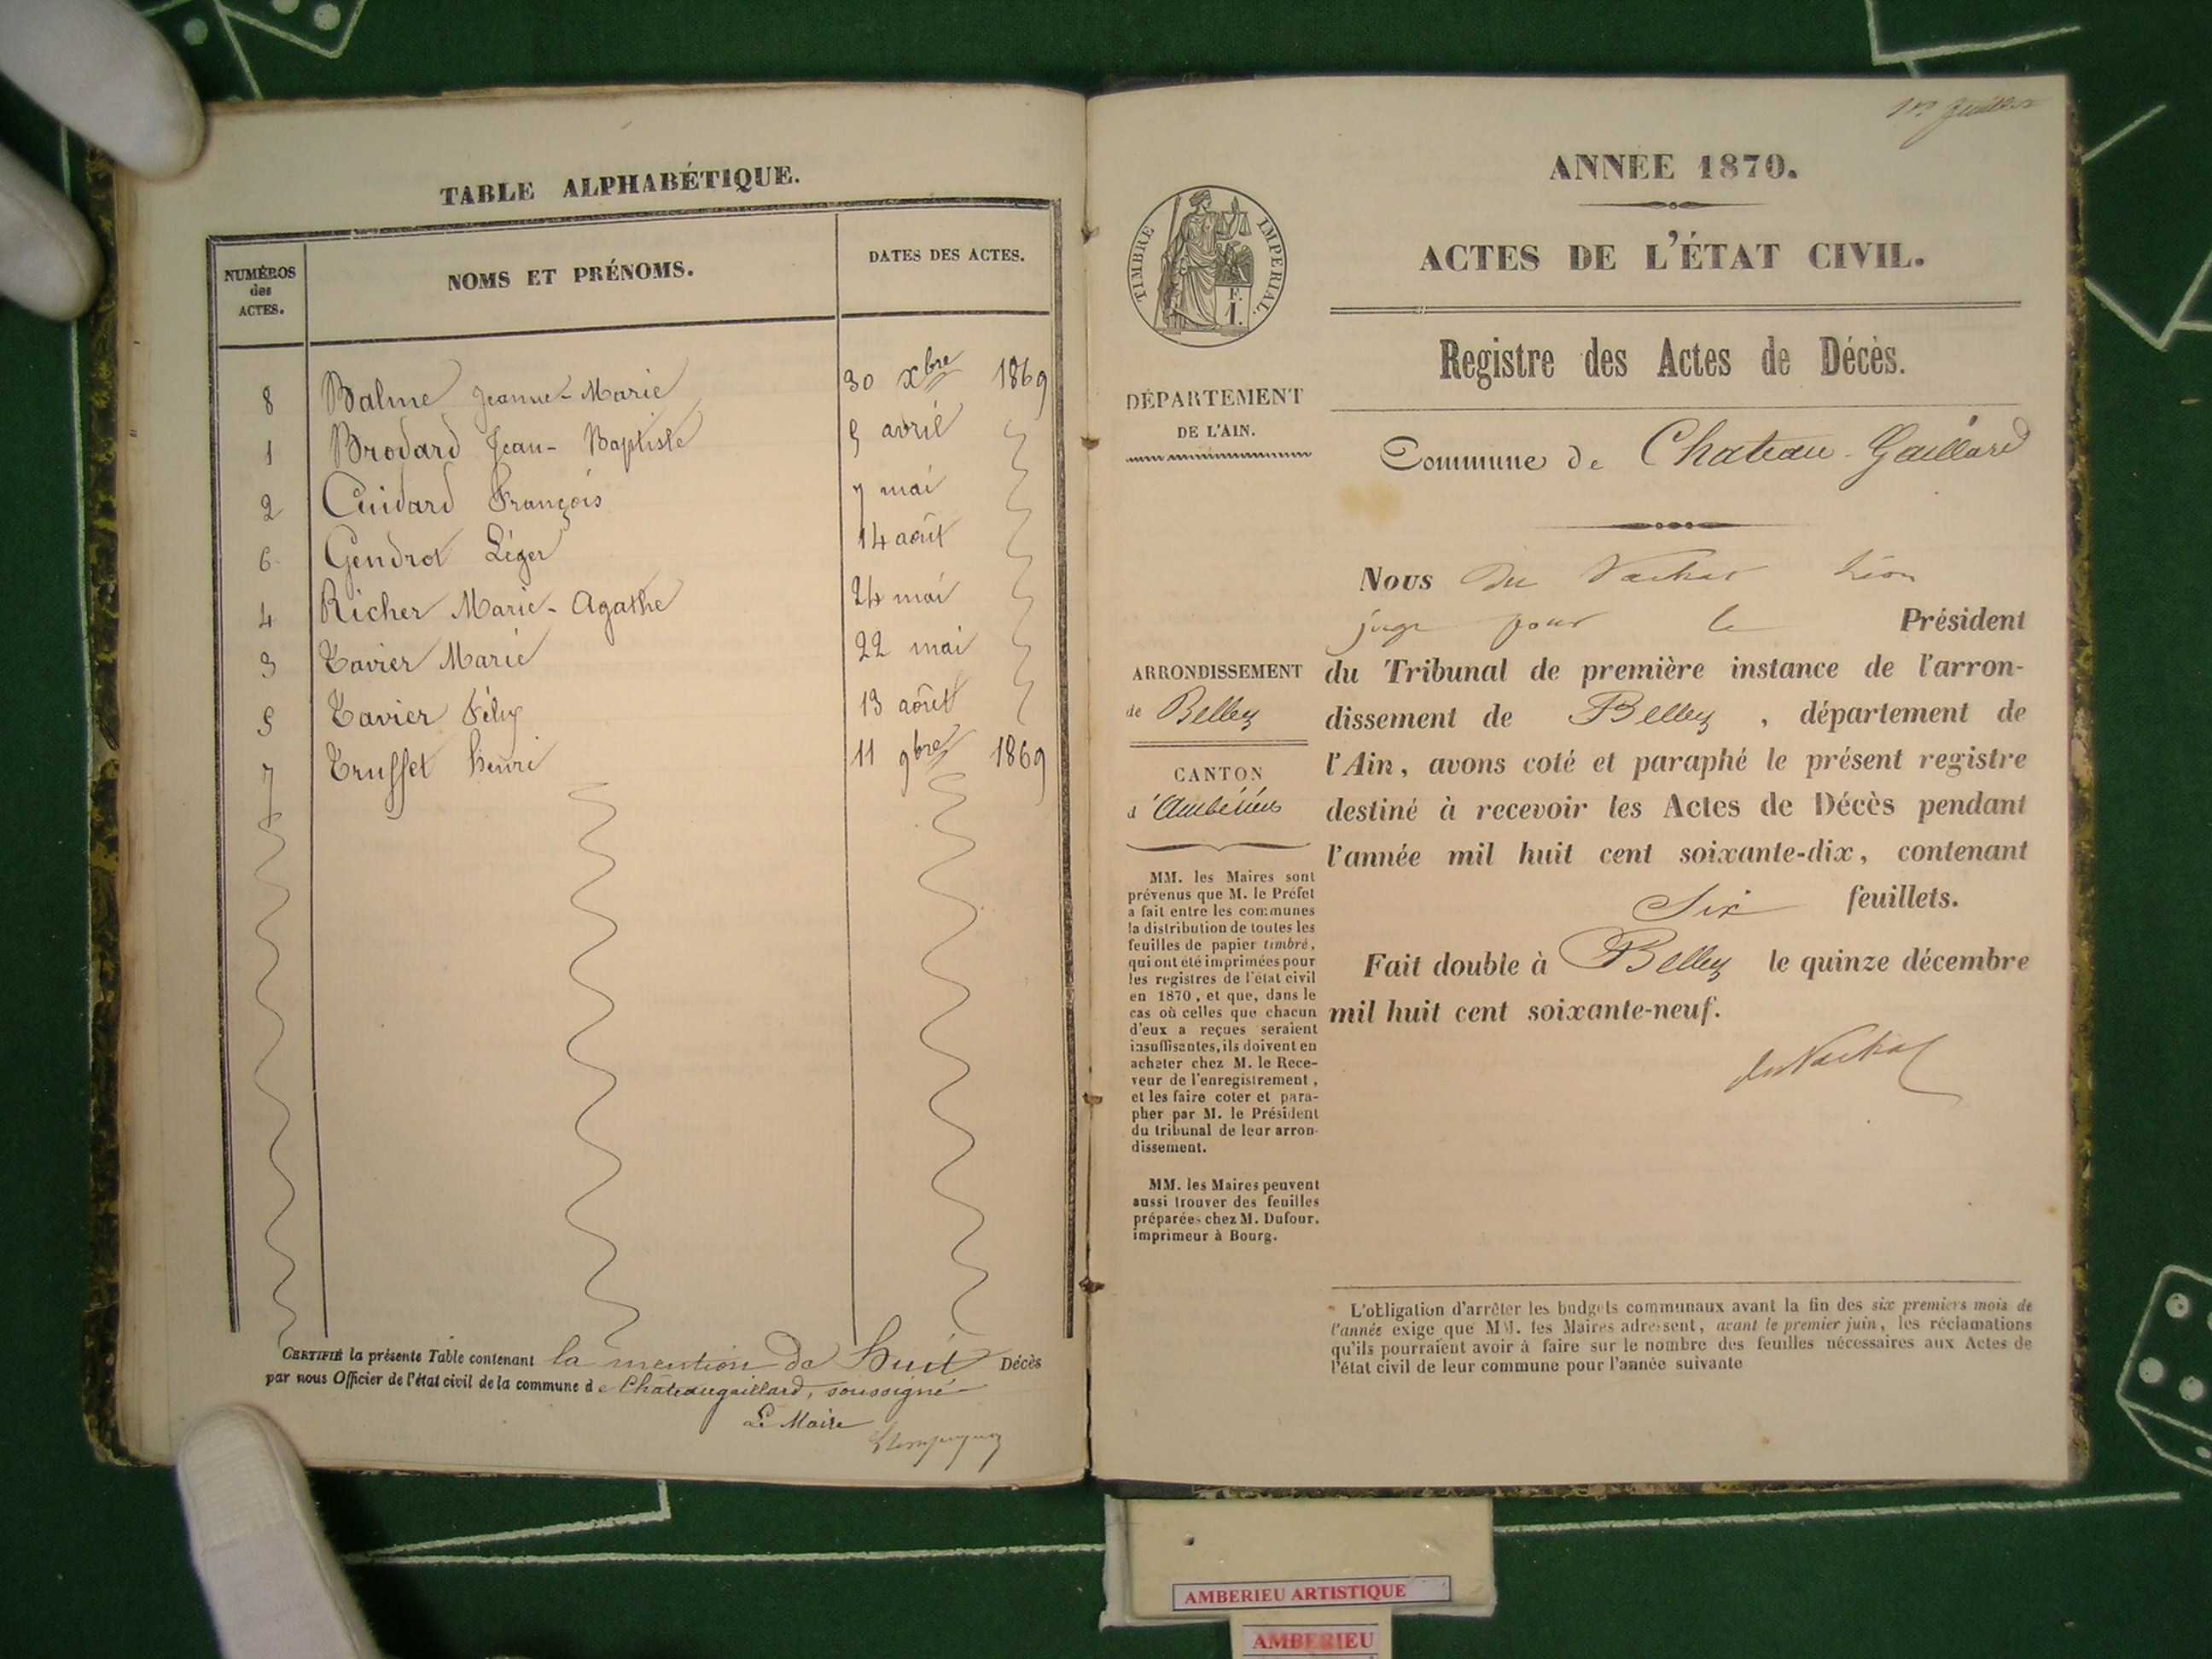 TABLE ALPHABÉTIQUE.
NUMÉROS
des
ACTES.
NOMS ET PRÉNOMS.
DATES DES ACTES.
8 Balme Jeanne-Marie 30 xbre 1869
1 Brodard Jean-Baptiste 5 avril
2 Cuidard François 7 mai
6 Gendrot Léger 14 août
4 Richer Marie-Agathe 24 mai
3 Tavier Marie 22 mai
5 Tavier Féliz 13 aôut
7 Truffet henri 11 9bre 1869
CERTIFIÉ la présente Table contenant la mention de huit Décès
par nous Officier de l'état civil de la commune de Châteaugaillard, soussigné
Le Maire
1er Juillet
ANNÉE 1870.
ACTES DE L'ÉTAT CIVIL.
Registre des Actes de Décès.
Commune de Chateau-Gaillard
TIMBRE IMPERIAL.
F.
1.
DÉPARTEMENT
DE L'AIN.
ARRONDISSEMENT
de Belley
CANTON
d'Ambérieu
MM. les Maires sont
prévenus que M. le Préfet
a fait entre les communes
la distribution de toutes les
feuilles de papier timbré,
qui ont été imprimées pour
les registres de l'état civil
en 1870, et que, dans le
cas où celles que chacun
d'eux a reçues seraient
insuffisantes, ils doivent en
acheter chez M. le Rece-
veur de l'enregistrement,
et les faire coter et para-
pher par M. le Président
du tribunal de leur arron-
dissement.
MM. les Maires peuvent
aussi trouver des feuilles
préparées chez M. Dufour,
imprimeur à Bourg.
Nous Du Vachat Léon
juge pour le Président
du Tribunal de première instance de l'arron-
dissement de Belley, département de
l'Ain, avons coté et paraphé le présent registre
destiné à recevoir les Actes de Décès pendant
l'année mil huit cent soixante-dix, contenant
Six feuillets.
Fait double à Belley le quinze décembre
mil huit cent soixante-neuf.
du Vachat
L'obligation d'arrêter les budgets communaux avant la fin des six premiers mois de
l'année exige que MM. les Maires adressent, avant le premier juin, les réclamations
qu'ils pourraient avoir à faire sur le nombre des feuilles nécessaires aux Actes de
l'état civil de leur commune pour l'année suivante
AMBERIEU ARTISTIQUE
AMBERIEU